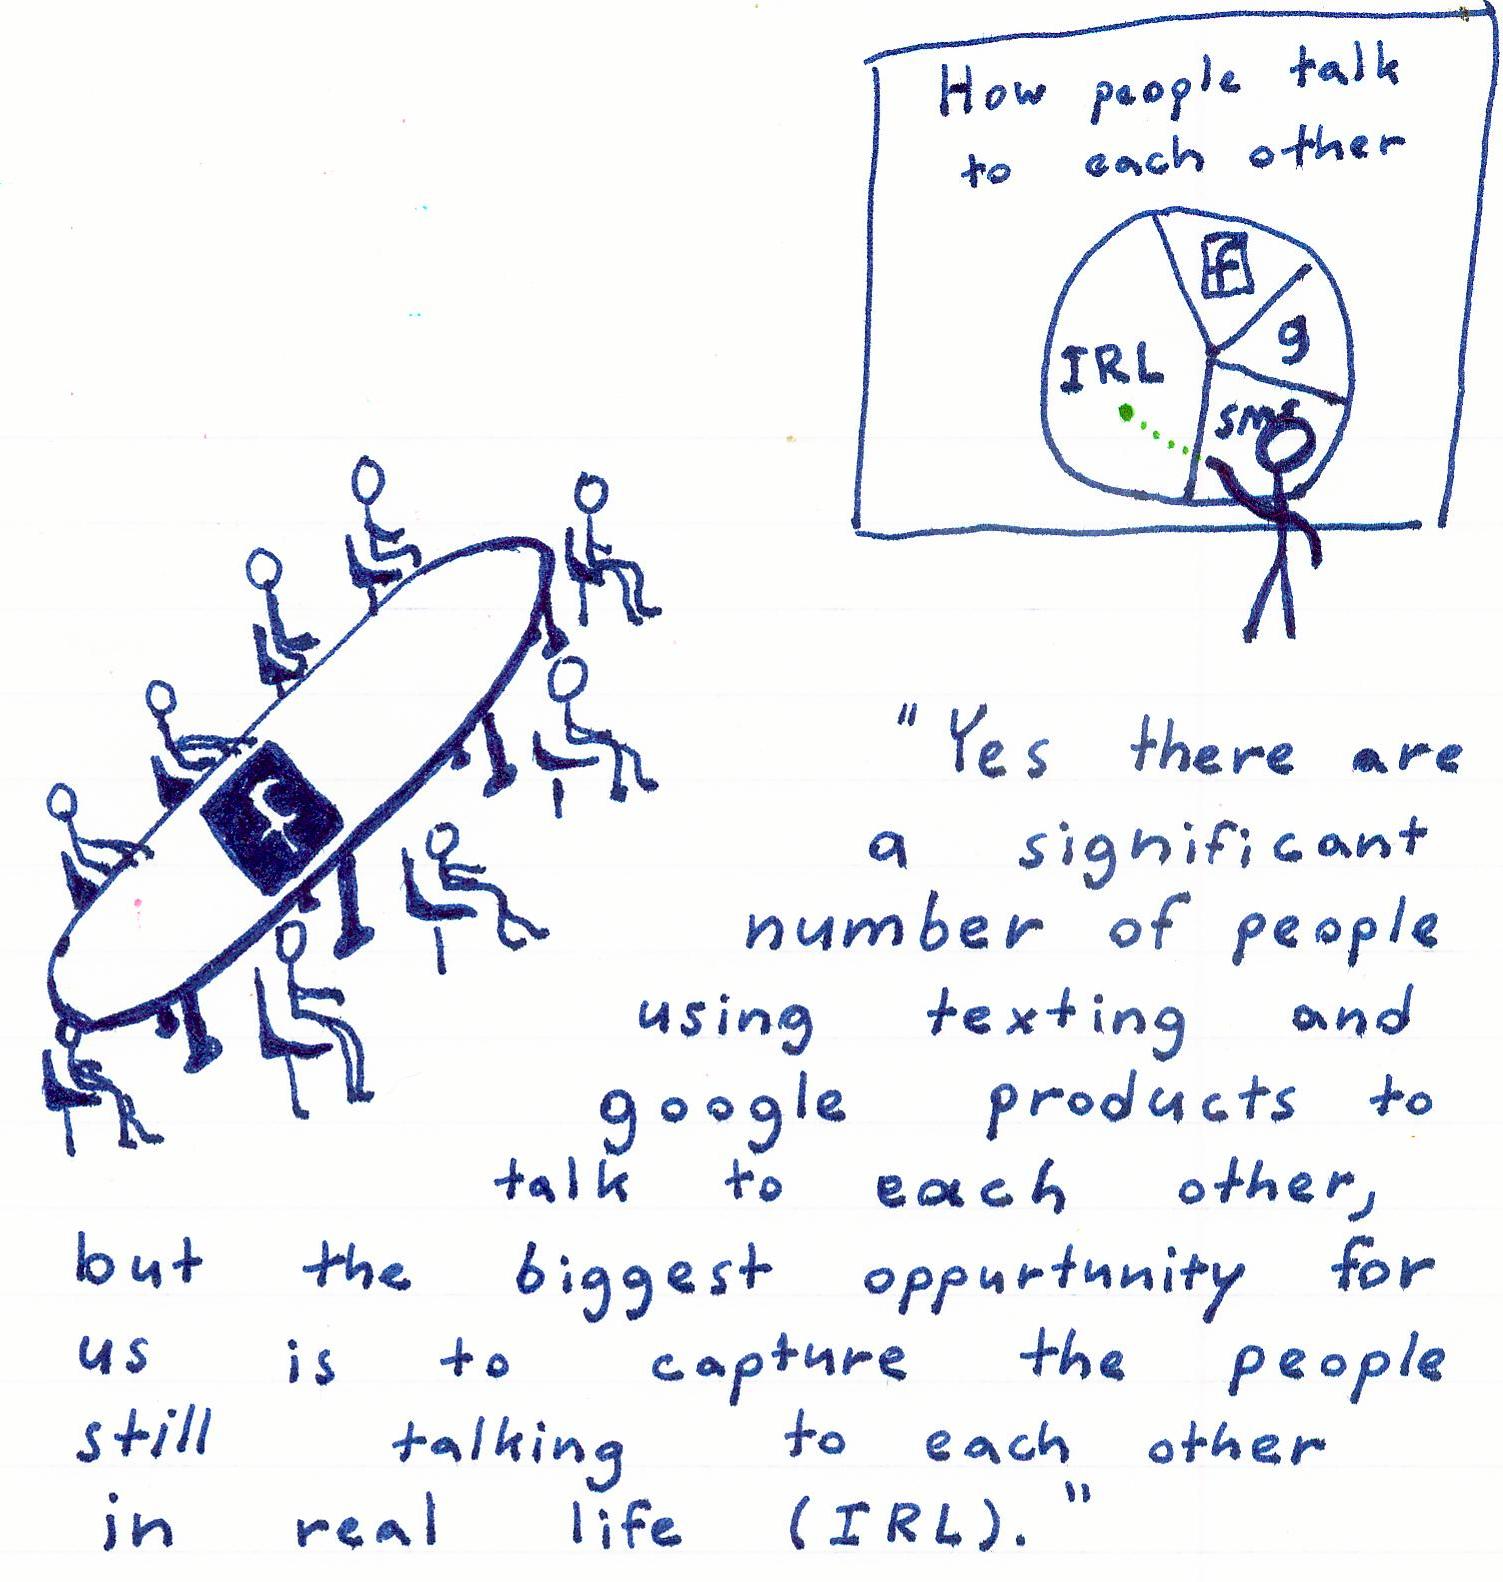 How people talk
to each other
f
g
IRL
SMS
f
"Yes there are
a significant
number of people
using texting and
google products to
talk to each other,
but the biggest oppurtunity for
us is to capture the people
still talking to each other
in real life (IRL)."